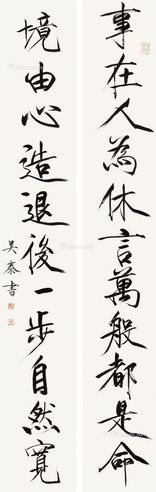 事在人為休言萬般都是命
境由心造退後一步自然寬
吳泰書